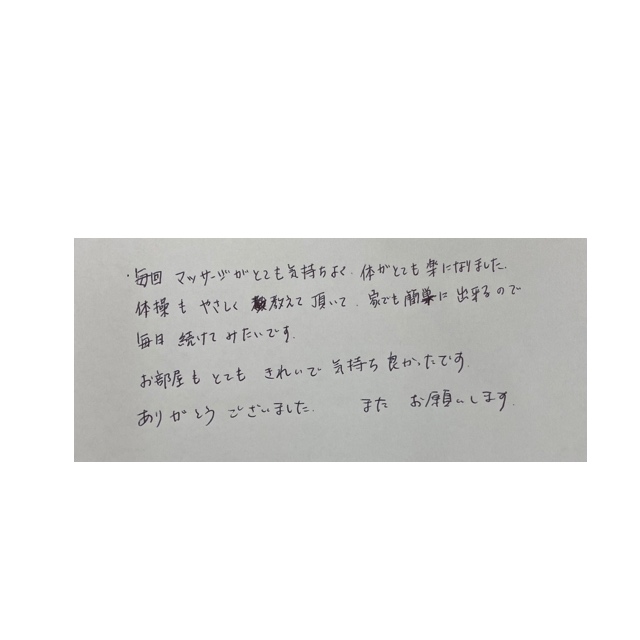 ・毎回 マッサージがとても気持ちよく、体がとても楽になりました。
体操も やさしく 教えて頂いて、家でも簡単に出来るので
毎日 続けてみたいです。
お部屋も とても きれいで 気持ち良かったです。
ありがとうございました。 また お願いします。